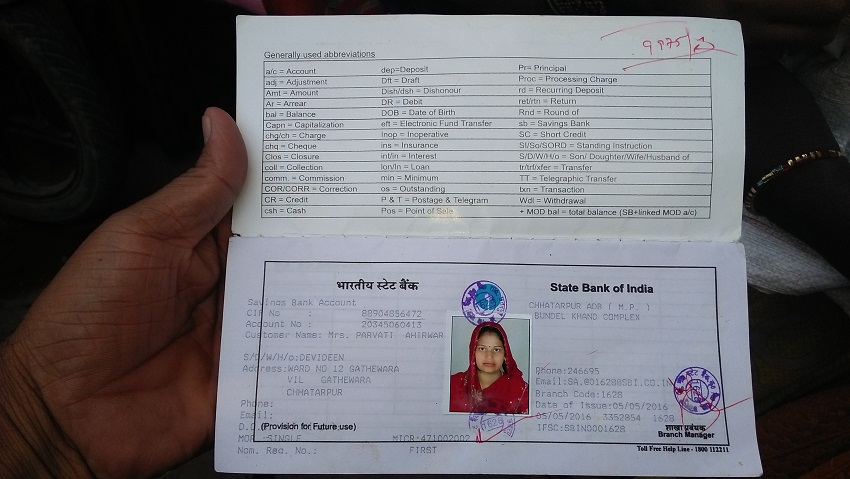 9975/
Generally used abbreviations
a/c = Account dep=Deposit Pr= Principal
adj = Adjustment Dft = Draft Proc = Processing Charge
Amt = Amount Dish/dsh = Dishonour rd = Recurring Deposit
Ar = Arrear DR = Debit ret/rtn = Return
bal = Balance DOB = Date of Birth Rnd = Round of
Capn = Capitalization eft = Electronic Fund Transfer sb = Savings Bank
chg/ch = Charge Inop = Inoperative SC = Short Credit
chq = Cheque ins = Insurance SI/So/SORD = Standing Instruction
Clos = Closure int/in = Interest S/D/W/H/o = Son/ Doughter/Wife/Husband of
coll = Collection lon/ln = Loan tr/trf/xfer = Transfer
comm. = Commission min = Minimum TT = Telegraphic Transfer
COR/CORR = Correction os = Outstanding txn = Transaction
CR = Credit P & T = Postage & Telegram Wdl = Withdrawal
csh = Cash Pos = Point of Sale + MOD bal = total balance (SB+linked MOD a/c)
भारतीय स्टेट बैंक State Bank of India
Savings Bank Account CHHATARPUR ADB ( M.P. )
CIF No : 88904856472 BUNDEL KHAND COMPLEX
Account No : 20345060413
Customer Name: Mrs. PARVATI AHIRWAR
S/D/W/H/o:DEVIDEEN
Address:WARD NO 12 GATHEWARA Phone:246695
VIL GATHEWARA Email:SA.@01628@SBI.CO.IN
CHHATARPUR Branch Code:1628
Phone: Date of Issue:05/05/2016
Email: 05/05/2016 3352854 1628
(Provision for Future use) IFSC:SBIN0001628
शाखा प्रबंधक
Branch Manager
MOP :SINGLE MICR:471002002
Nom. Reg. No.: FIRST
Toll Free Help Line - 1800 112211